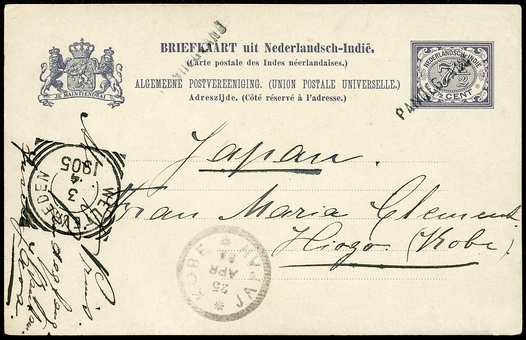 BRIEFKAART uit Nederlandsch-Indië.
(Carte postale des Indes néerlandaises.)
ALGEMEENE POSTVEREENIGING. (UNION POSTALE UNIVERSELLE.)
Adreszijde. (Côté réservé à l'adresse.)
JE MAINTIENDRAI
NEDERLANDSCH-INDIË
7½
7½ CENT
WELTEVREDEN
3
4
1905
Japan.
Frau Maria Clement
Hiogo (Kobe)
KOBE
25
APR
JAPAN
Java.